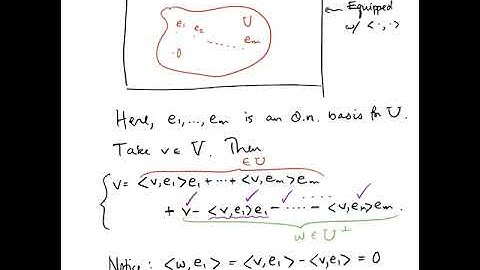 ← Equipped
w/ <·,·>
e₁ e₂ U
·0 ...... eₘ
Here, e₁,...,eₘ is an O.n. basis for U.
Take v ∈ V. Then
∈ U
v = <v,e₁>e₁ + ··· + <v,eₘ>eₘ
+ v - <v,e₁>e₁ - ···· - <v,eₘ>eₘ.
w ∈ U⊥
Notice: <w,e₁> = <v,e₁> - <v,e₁> = 0